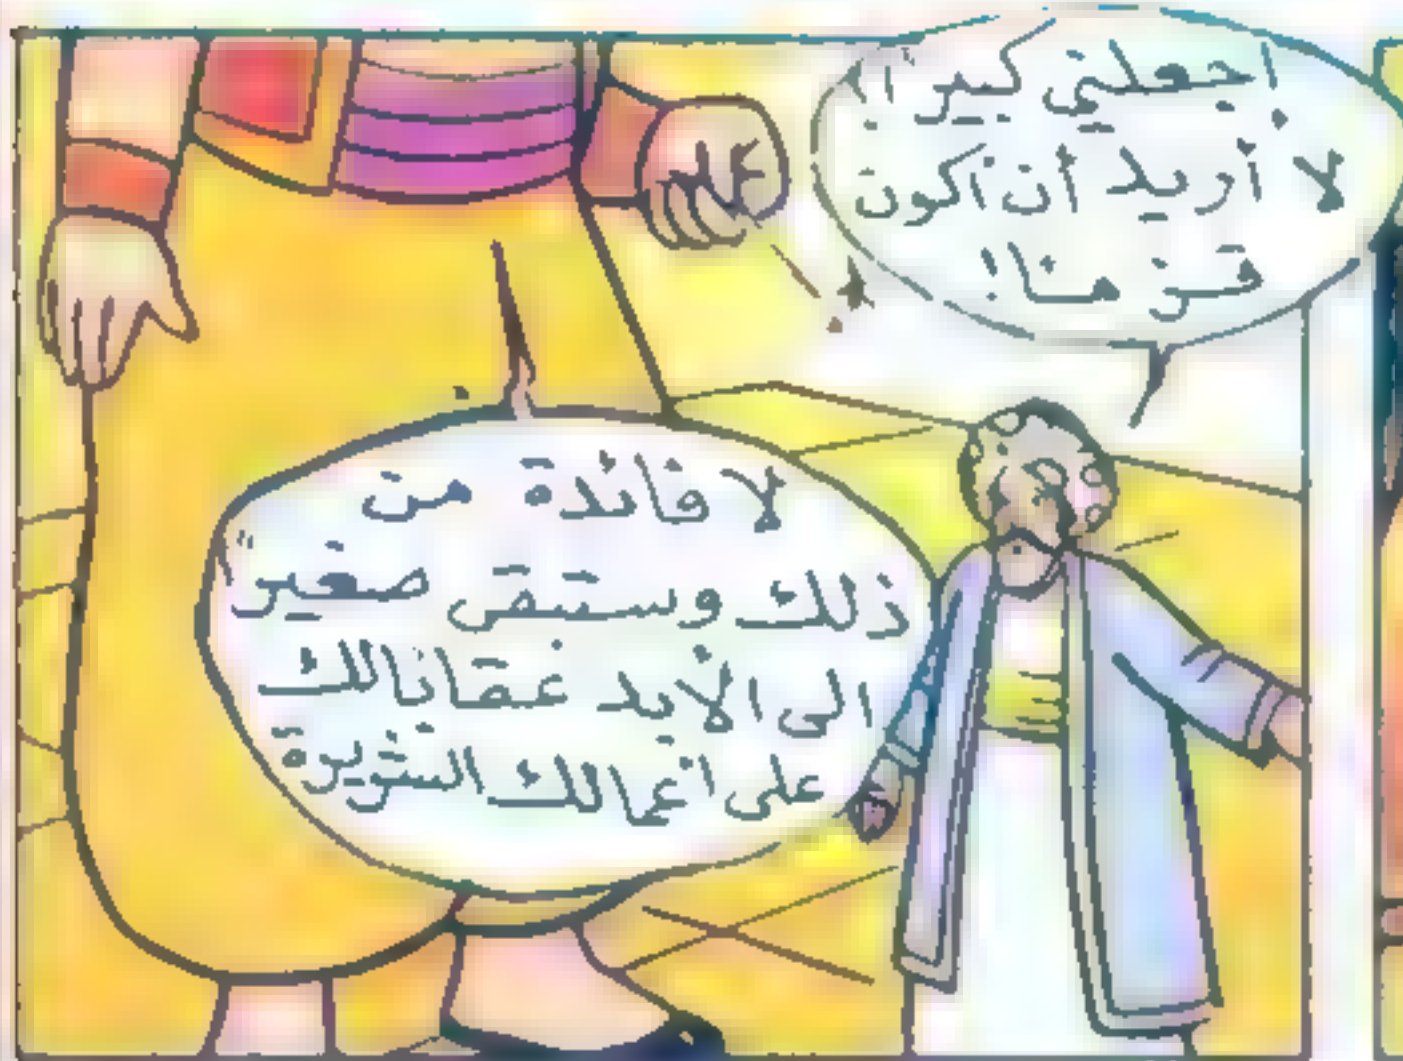 اجعلني كبيراً
لا أريد أن أكون
قزماً!
لا فائدة من
ذلك وستبقى صغيراً
الى الأبد عقابا لك
على اعمالك الشريرة